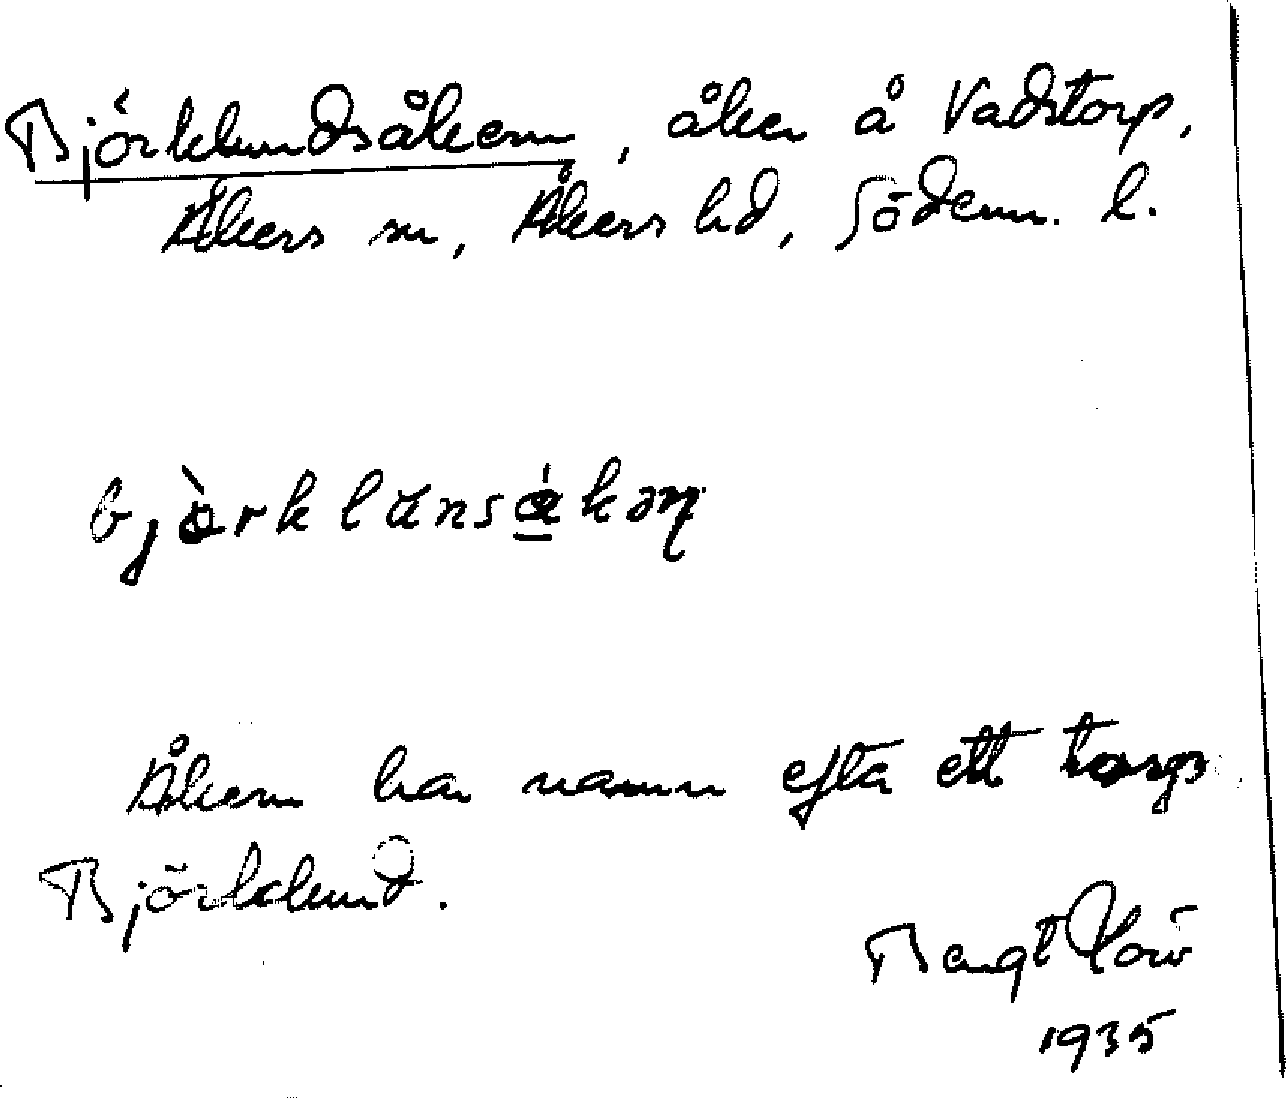 Björklundsåkern, åker å Vadstorp,
Åkers sn, Åkers hd, Söderm. l.
Åkern har namn efter ett torp
Björklund.
Bengt
1935